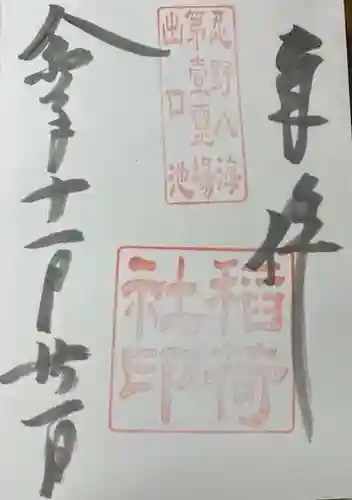 奉拝
忍野八海
第壱霊場
出口池
稲荷
社印
令和六年十一月廿一日